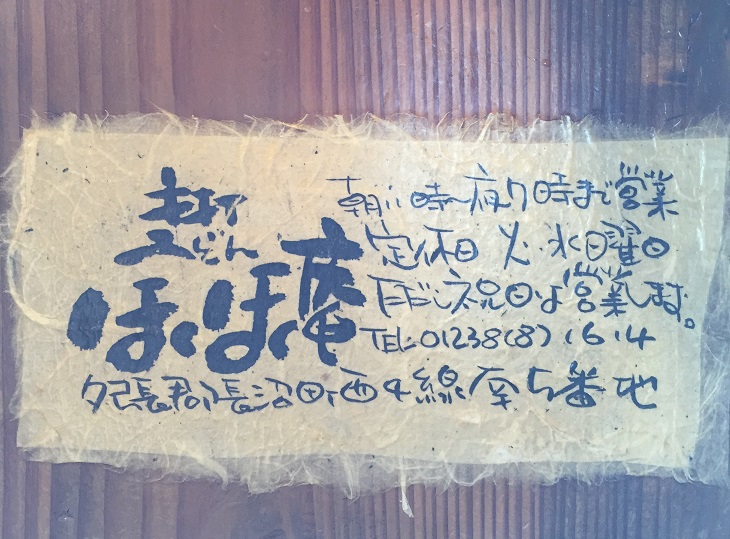 手打
うどん
ほくほく庵
朝11時〜夜7時まで営業
定休日 火・水曜日
ただし祝日は営業します。
TEL:01238(8)1614
夕張郡長沼町西4線南5番地